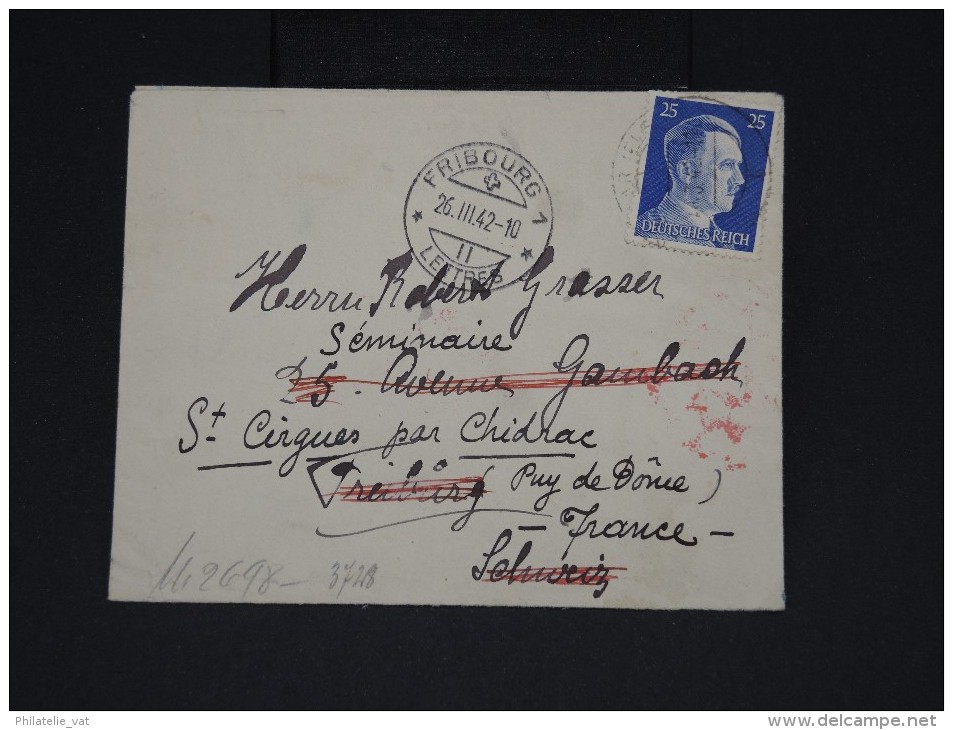 25 25
DEUTSCHES REICH
FRIBOURG 1
26.III.42-10
II
LETTRES
Herrn Robert Grasser
Séminaire
25. Avenue Gambach
St Cirgues par Chidrac
Freiburg Puy de Dôme)
- France -
Schweiz
3728
Philatelie_vat
www.delcampe.net